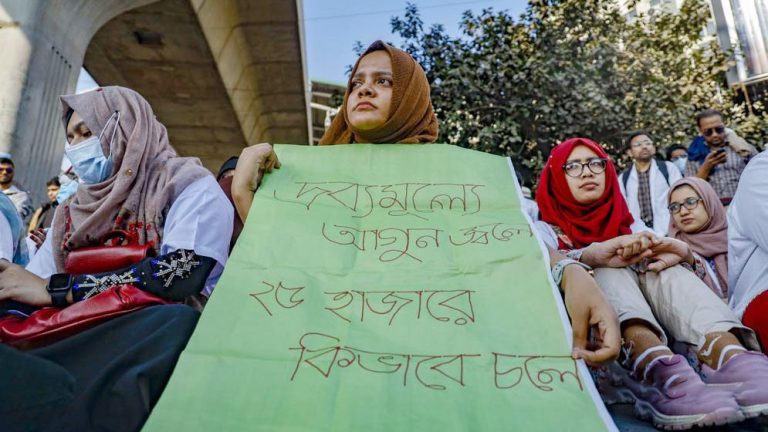 দ্রব্যমূল্যে
আগুন জ্বলে
২৫ হাজারে
কিভাবে চলে